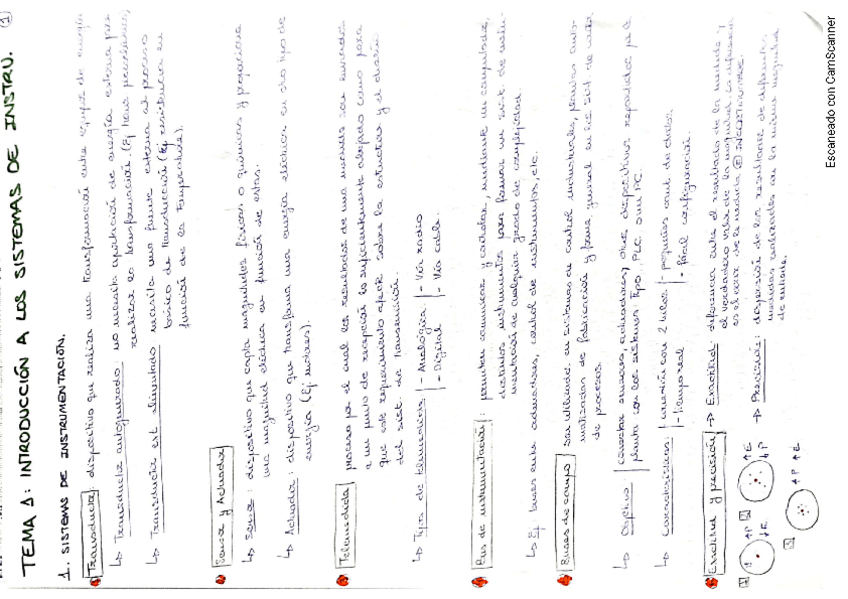 TEMA 1: INTRODUCCIÓN A LOS SISTEMAS DE INSTRU. 1
1. SISTEMAS DE INSTRUMENTACIÓN.
Transductor: dispositivo que realiza una transformación entre tipos de energía
↳ Transductor autogenerador: no necesita aportación de energía externa para
realizar la transformación. (Ej
↳ Transductor ext. alimentado: necesita una fuente externa al proceso
básico de transducción (Ej. resistencia en
función de la temperatura).
Sensor y Actuador
↳ Sensor: dispositivo que capta magnitudes físicas o químicas y proporciona
una magnitud eléctrica en función de estas.
↳ Actuador: dispositivo que transforma una energía eléctrica en otro tipo de
energía (Ej motores).
Telemedida: proceso por el cual los resultados de una medida son enviados
a un punto de recepción lo suficientemente alejado como para
que este requerimiento afecte sobre la estructura y el diseño
del sist. de transmisión.
↳ Tipos de telemedidas: - Analógica - Vía radio
- Digital - Vía cable.
Bus de instrumentación: permiten comunicar y controlar, mediante un computador,
distintos instrumentos para formar un sist. de instru-
mentación de cualquier grado de complejidad.
↳ Ej buses entre actuadores, control de instrumentos, etc.
Buses de campo: son utilizados en sistemas de control industriales, plantas auto-
matizadas de fabricación y forma general en los sist. de control
de procesos.
↳ Objetivo: conectar sensores, actuadores, otros dispositivos repartidos por la
planta con los sistemas tipo PLC o un PC.
↳ Características: conexión con 2 hilos - pequeñas cant. de datos
- tiempo real - fácil configuración.
Exactitud y precisión → Exactitud: diferencia entre el resultado de la medida y
el verdadero valor de la magnitud. La diferencia
es el error de la medida INCERTIDUMBRE.
→ Precisión: dispersión de los resultados de diferentes
medidas realizadas en la misma magnitud
de entrada.
1 ↑P ↓E 2 ↑E ↓P
3 ↑P ↑E
Escaneado con CamScanner